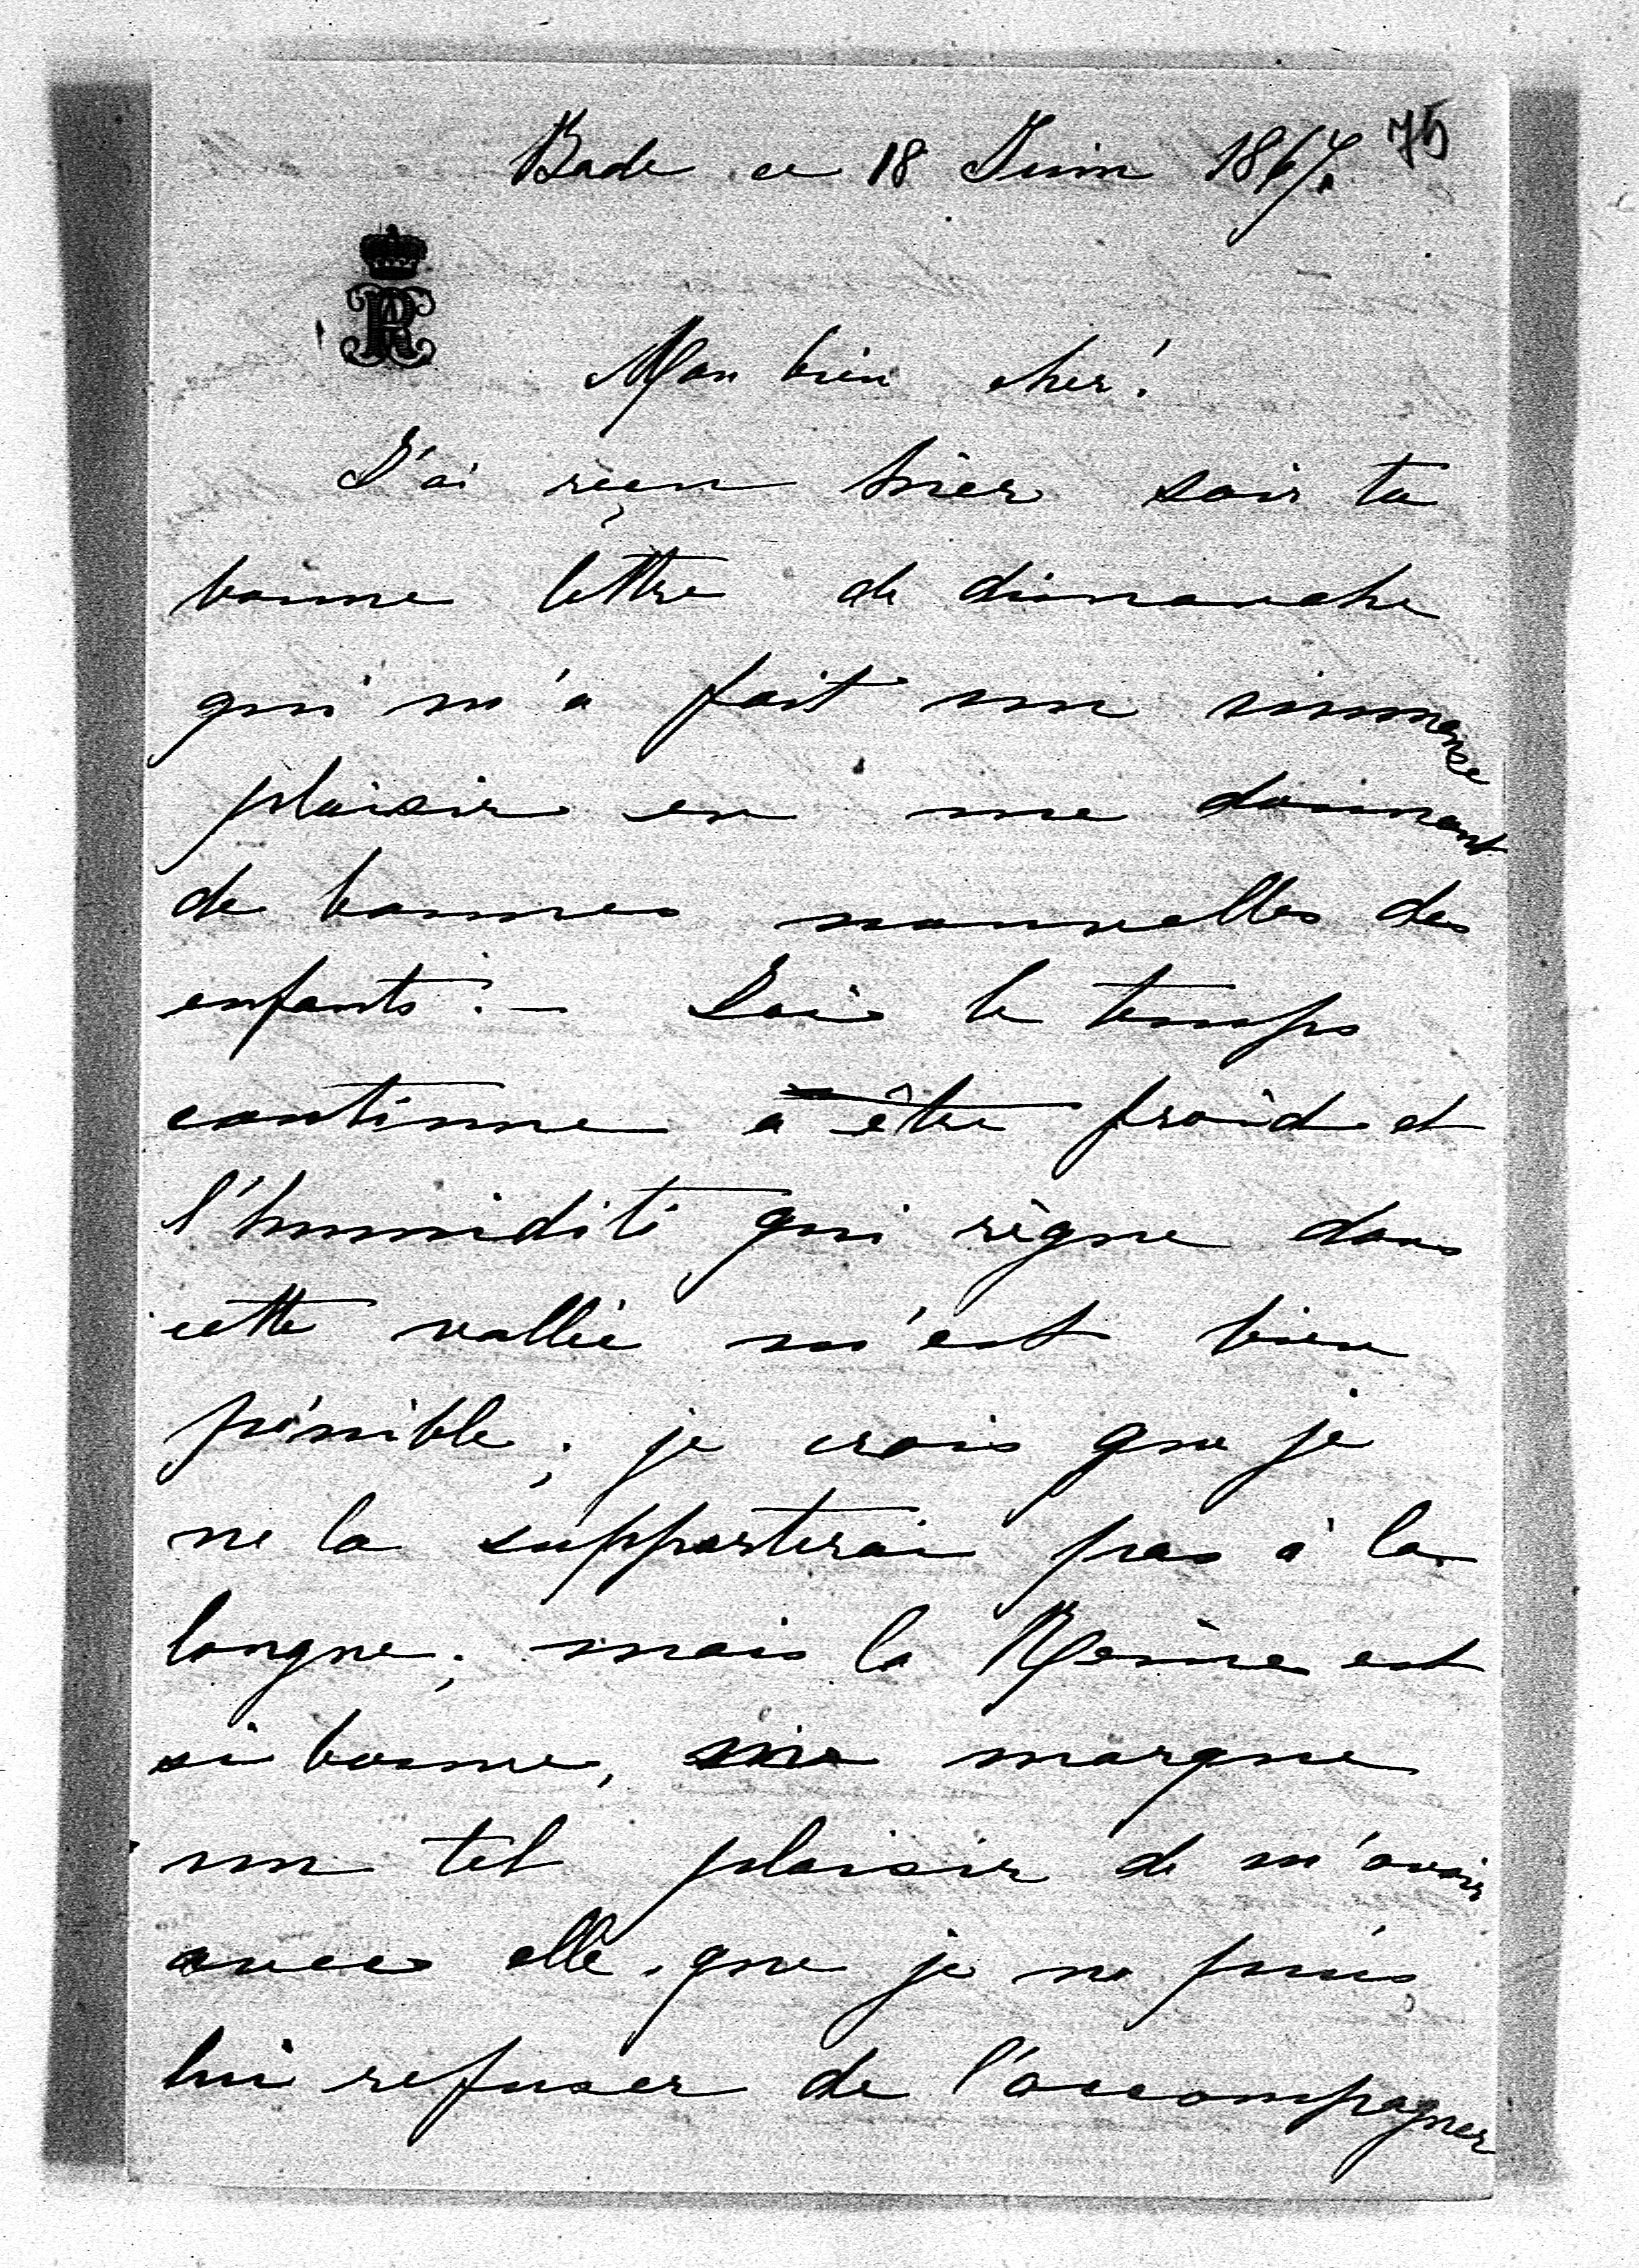 Bade ce 18 Juin 1867. 75
AR
Mon bien cher!
J'ai reçu hier soir ta
bonne lettre de dimanche
qui m'a fait un immense
plaisir en me donnant
de bonnes nouvelles des
enfants. – Ici le temps
continue à être froid et
l'humidité qui règne dans
cette vallée m'est bien
pénible; je crois que je
ne la supporterai pas à la
longue; mais la Reine est
si bonne, me marque
un tel plaisir de m'avoir
avec elle, que je ne puis
lui refuser de l'accompagner